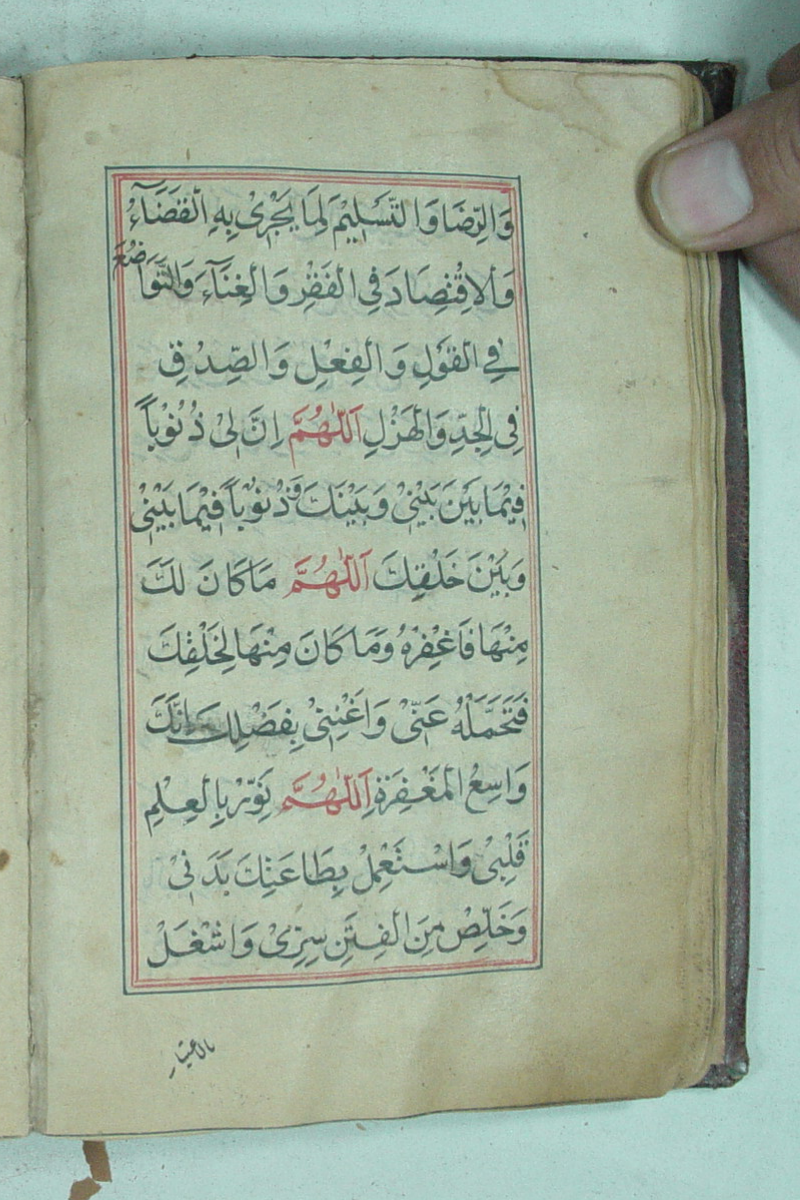 وَالرِّضَا وَالتَّسْلِيْمَ لِمَا يَجْرِىْ بِهِ الْقَضَآءُ
وَالْاِقْتِصَادَ فِى الْفَقْرِ وَالْغِنَآءِ وَالتَّوَاضُعَ
فِى الْقَوْلِ وَالْفِعْلِ وَالصِّدْقِ
فِى الْجِدِّ وَالْهَزْلِ اَللّٰهُمَّ اِنَّ لِىْ ذُنُوْبًا
فِيْمَا بَيْنَ بَيْنِىْ وَبَيْنَكَ وَذُنُوْبًا فِيْمَا بَيْنِىْ
وَبَيْنَ خَلْقِكَ اَللّٰهُمَّ مَا كَانَ لَكَ
مِنْهَا فَاغْفِرْهُ وَمَا كَانَ مِنْهَا لِخَلْقِكَ
فَتَحَمَّلْهُ عَنِّىْ وَاَغْنِنِىْ بِفَضْلِكَ اِنَّكَ
وَاسِعُ الْمَغْفِرَةِ اَللّٰهُمَّ نَوِّرْ بِالْعِلْمِ
قَلْبِىْ وَاسْتَعْمِلْ بِطَاعَتِكَ بَدَنِىْ
وَخَلِّصْ مِنَ الْفِتَنِ سِرِّىْ وَاشْغَلْ
بالاعتبار